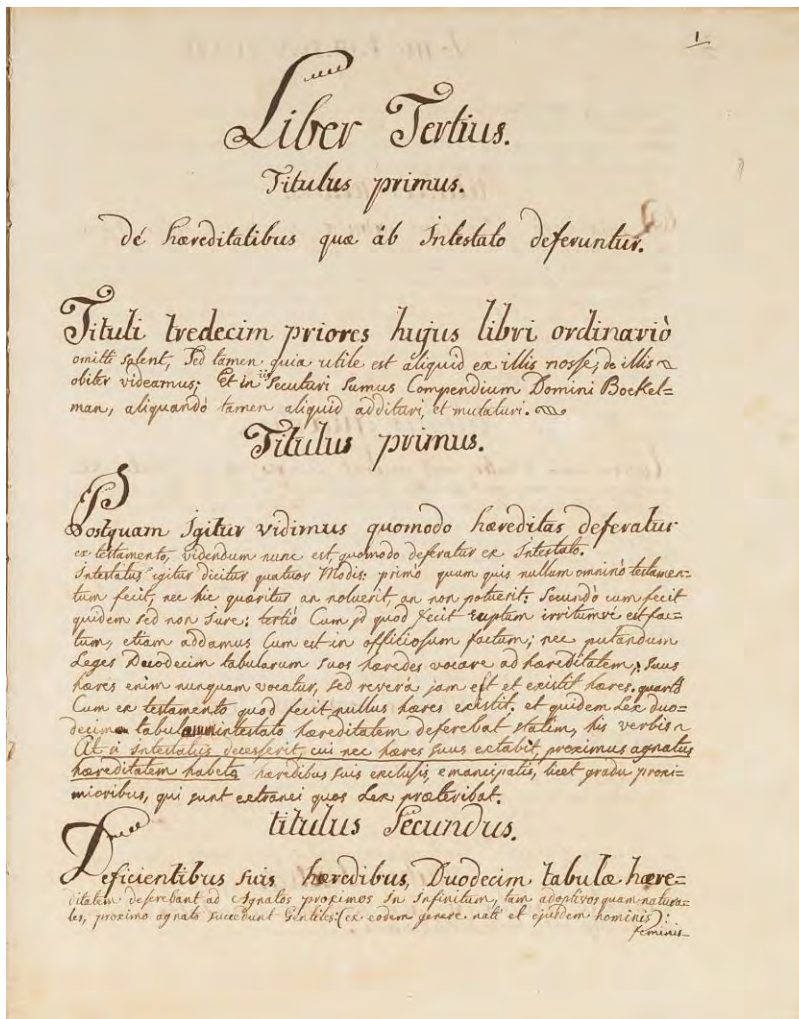 1
Liber Tertius.
Titulus primus.
dé hæreditatibus quæ áb Intestato deferuntur.
Tituli tredecim priores hujus libri ordinariò
omitti solent, Sed tamen quia utile est aliquid ex illis nosse, de illis
obiter videamus; Et in iis Secuturi sumus Compendium Domini Bockel=
man, aliquandò tamen aliquid addituri, et mutaturi.
Titulus primus.
Postquam Igitur vidimus quomodo hæreditas deferatur
ex testamento, videndum nunc est quomodo deferatur ex Intestato.
Intestatus igitur dicitur quatuor Modis: primò quum quis nullum omninò testamen=
tum fecit, nec hic quæritur an noluerit, an non potuerit: Secundò cum fecit
quidem sed non Jure; tertiò Cum id quod fecit ruptum irritumve est fac=
tum, etiam addamus Cum est in officiosum factum; nec putandum
Leges Duodecim tabularum suos hæredes vocare ad hæreditatem, Suus
hæres enim nunquam vocatur, sed reverà jam est et existit hæres. quartò
Cum ex testamento quod fecit nullus hæres existit. et quidem Lex duo=
decim intestato hæreditatem deferebat statim, his verbis
At si Intestatus decesserit, cui nec hæres suus extabit, proximus agnatus
hæreditatem habeto hæredibus suis exclusis, emancipatis, licet gradu proxi=
mioribus, qui sunt extranei quos Lex præteribat.
titulus Secundus.
Deficientibus suis hæredibus, Duodecim tabulæ hære=
ditatem deferebant ad Agnatos proximos in Infinitum, tam adoptivos quam natura=
les, proximo agnato succedunt Gentiles: (ex eodem genere nati et ejusdem hominis):
feminis